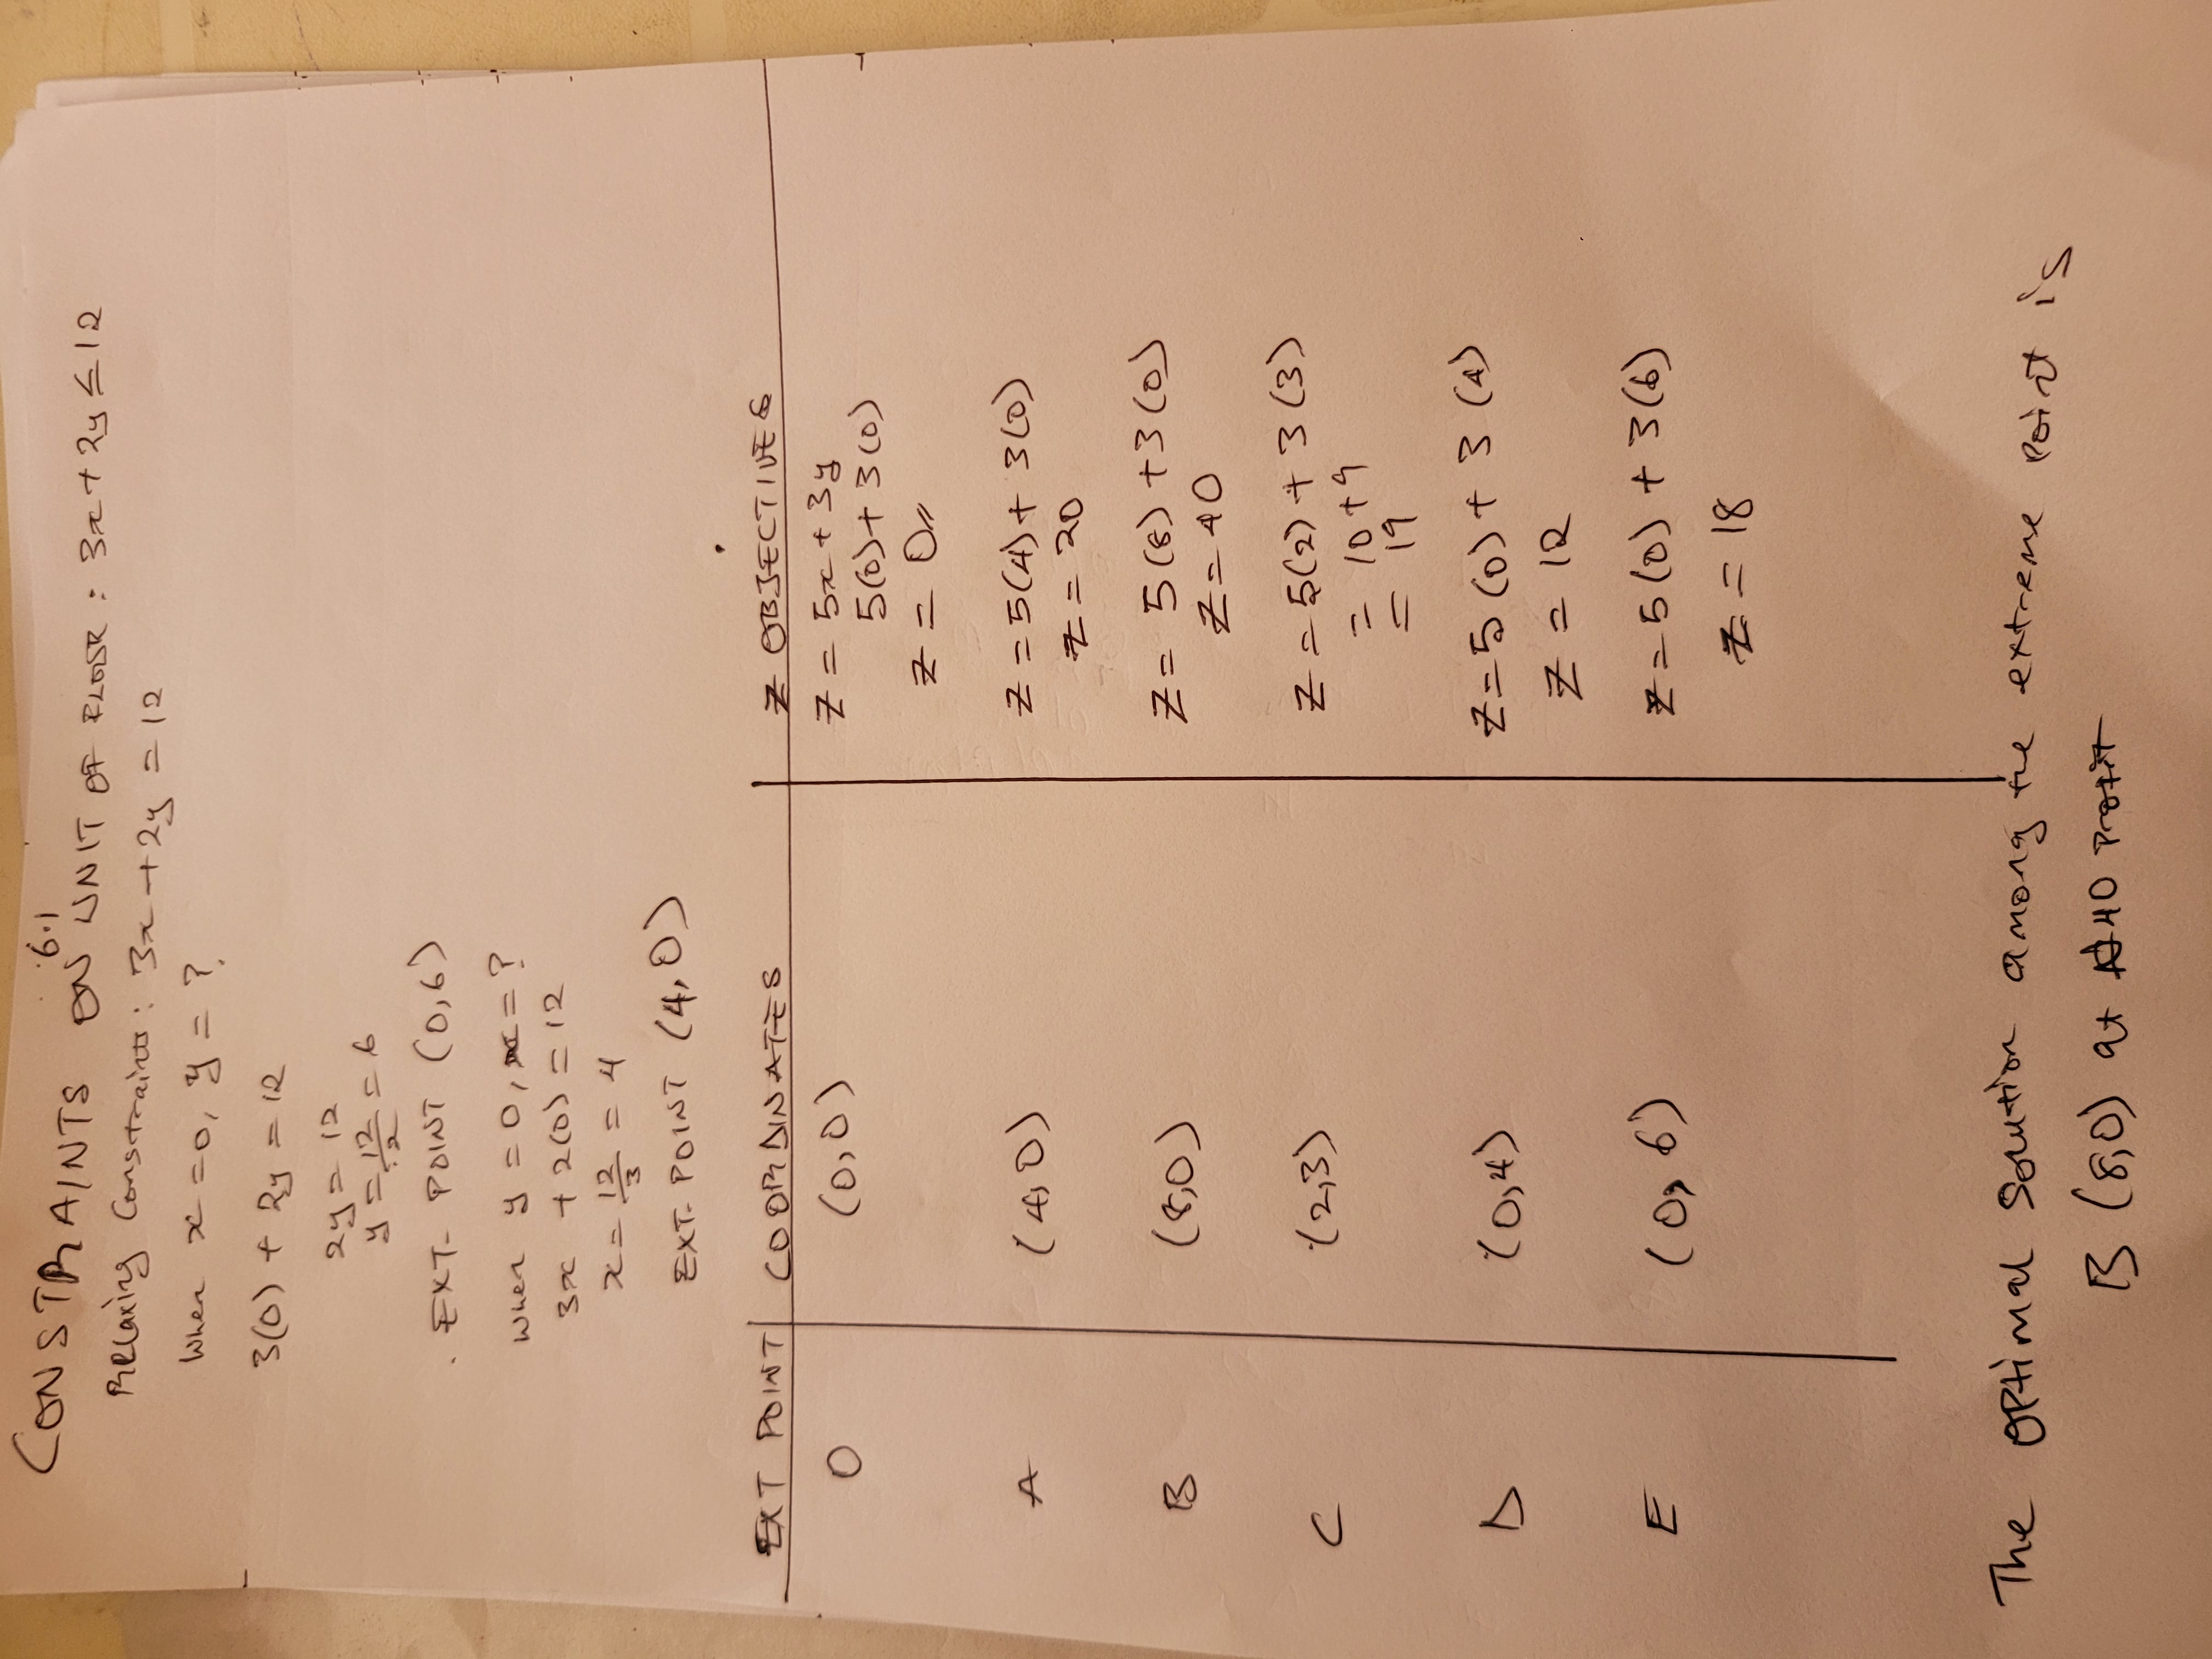 6.1
CONSTRAINTS ON UNIT OF FLOUR : 3x + 2y ≤ 12
Relaxing Constraints : 3x + 2y = 12
When x = 0, y = ?
3(0) + 2y = 12
2y = 12
y = 12/2 = 6
EXT- POINT (0,6)
When y = 0, x = ?
3x + 2(0) = 12
x = 12/3 = 4
EXT- POINT (4,0)
EXT POINT COORDINATES Z OBJECTIVES
O (0,0) Z = 5x + 3y
5(0) + 3(0)
Z = 0
A (4,0) Z = 5(4) + 3(0)
Z = 20
B (8,0) Z = 5(8) + 3(0)
Z = 40
C (2,3) Z = 5(2) + 3(3)
= 10 + 9
= 19
D (0,4) Z = 5(0) + 3(4)
Z = 12
E (0,6) Z = 5(0) + 3(6)
Z = 18
The optimal solution among the extreme point is
B (8,0) at ₦40 Profit